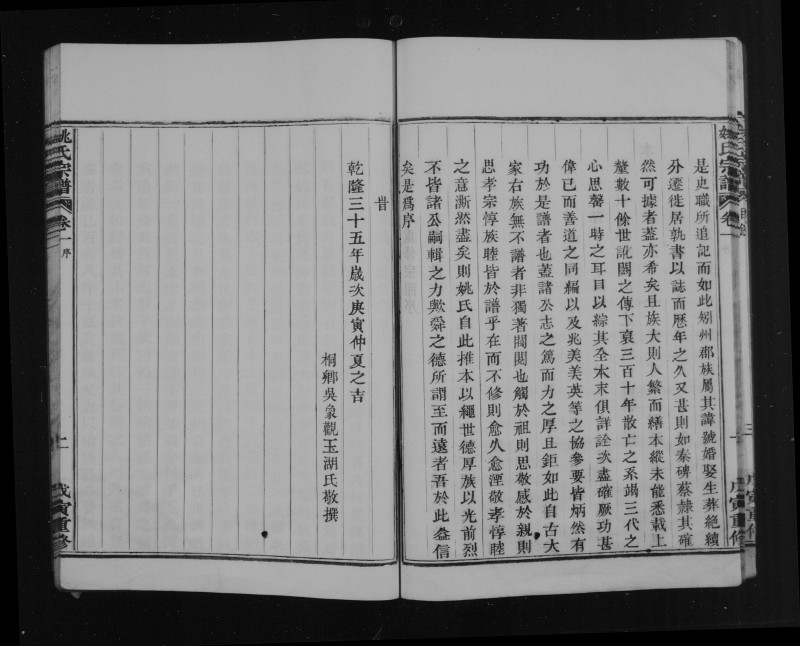 姚氏宗譜
卷一
戊寅重修
是史職所追記而如此矧州郡族屬其諱號婚娶生葬絶續
外遷徙居孰書以誌而歷年之久又甚則如秦碑蔡隸其確
然可據者蓋亦希矣且族大則人繁而繕本縱未能悉載上
釐數十餘世訛闕之傳下裒三百十年散亡之系竭三代之
心思罄一時之耳目以綜其全本末俱詳詮次盡確厥功甚
偉已而善道之同編以及兆美美英等之協參要皆炳然有
功於是譜者也蓋諸公志之篤而力之厚且鉅如此自古大
家右族無不譜者非獨著閥閱也觸於祖則思敬感於親則
思孝宗惇族睦皆於譜乎在而不修則愈久愈湮敬孝惇睦
之意漸濒盡矣則姚氏自此推本以繩世德厚族以光前烈
不皆諸公嗣輯之力歟舜之德所謂至而遠者吾於此益信
矣是爲序
旹
乾隆三十五年歲次庚寅仲夏之吉
桐鄉吳象觀玉湖氏敬撰
姚氏宗譜
卷一
序
二
戊寅重修